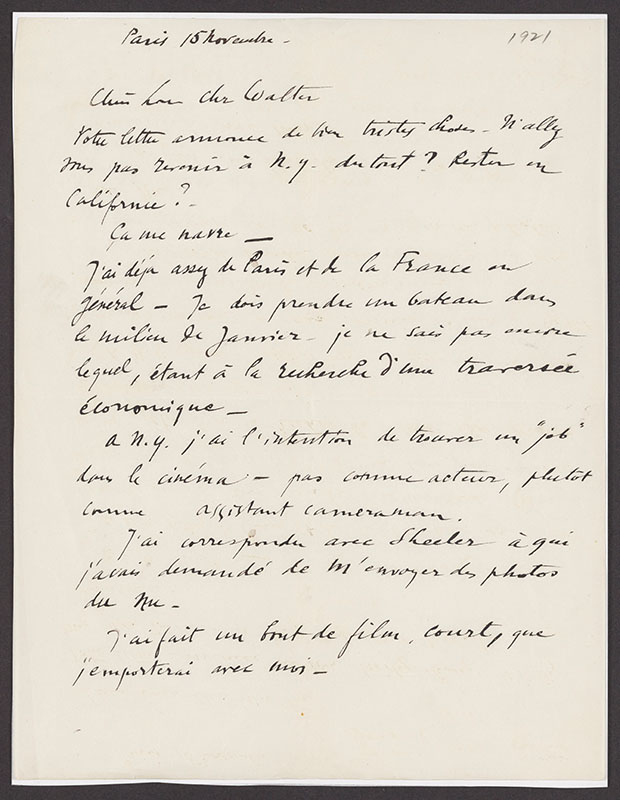 Paris 15 Novembre -
1921
Chère Lou Cher Walter
Votre lettre annonce de bien tristes choses - N'allez
vous pas revenir à N.Y. du tout? Rester en
Californie? -
Ça me navre —
J'ai déjà assez de Paris et de la France en
général - Je dois prendre un bateau dans
le milieu de Janvier - je ne sais pas encore
lequel, étant à la recherche d'une traversée
économique -
A N.Y. j'ai l'intention de trouver un "job"
dans le cinéma - pas comme acteur, plutot
comme assistant cameraman.
J'ai correspondu avec Sheeler à qui
j'avais demandé de m'envoyer des photos
du Nu -
J'ai fait un bout de film, court, que
j'emporterai avec moi -